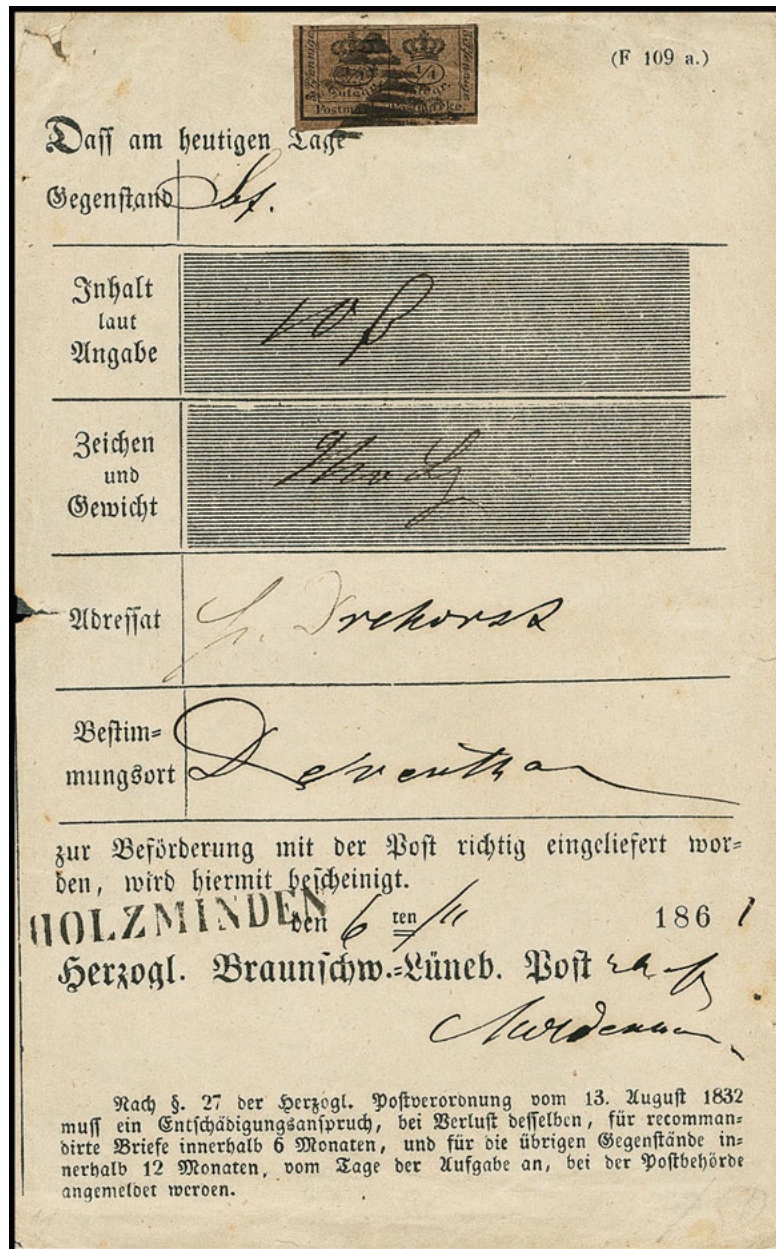 (F 109 a.)
Daſſ am heutigen Tage
Gegenſtand Bf.
Inhalt
laut
Angabe
Zeichen
und
Gewicht
Adreſſat
Beſtim=
mungsort
zur Beförderung mit der Poſt richtig eingeliefert wor=
den, wird hiermit beſcheinigt.
HOLZMINDEN den 6 ten /11 1861
Herzogl. Braunſchw.=Lüneb. Poſt
Nach §. 27 der Herzogl. Poſtverordnung vom 13. Auguſt 1832
muſſ ein Entſchädigungsanſpruch, bei Verluſt deſſelben, für recomman=
dirte Briefe innerhalb 6 Monaten, und für die übrigen Gegenſtände in=
nerhalb 12 Monaten, vom Tage der Aufgabe an, bei der Poſtbehörde
angemeldet werden.